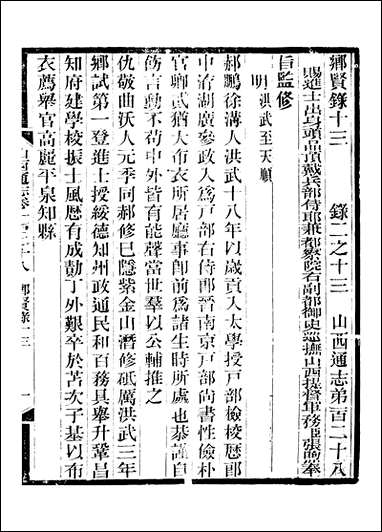 鄉賢錄十三　錄二之十三　山西通志弟百二十八
賜進士出身頭品頂戴兵部侍郎兼都察院右副都御史巡撫山西提督軍務臣張煦奉
旨監修
明洪武至天順
郝鵬徐溝人洪武十八年以歲貢入太學授戶部檢校歷郎
中湖廣參政入爲戶部右侍郎晉南京戶部尚書性儉朴
官鄉貳猶大布衣所居廳事即前爲諸生時所處也恭謹自
飭言動不苟中外皆有能聲當世羣以公輔推之
仇敬曲沃人元季同郝修巳隱紫金山潛修砥厲洪武三年
鄉試第一登進士授綏德知州政通民和百務具舉升鞏昌
知府建學校振士風歷有成勣丁外艱卒於苫次子基以布
衣薦舉官高麗平泉知縣
山西通志卷一百二十八　鄉賢錄十三　一